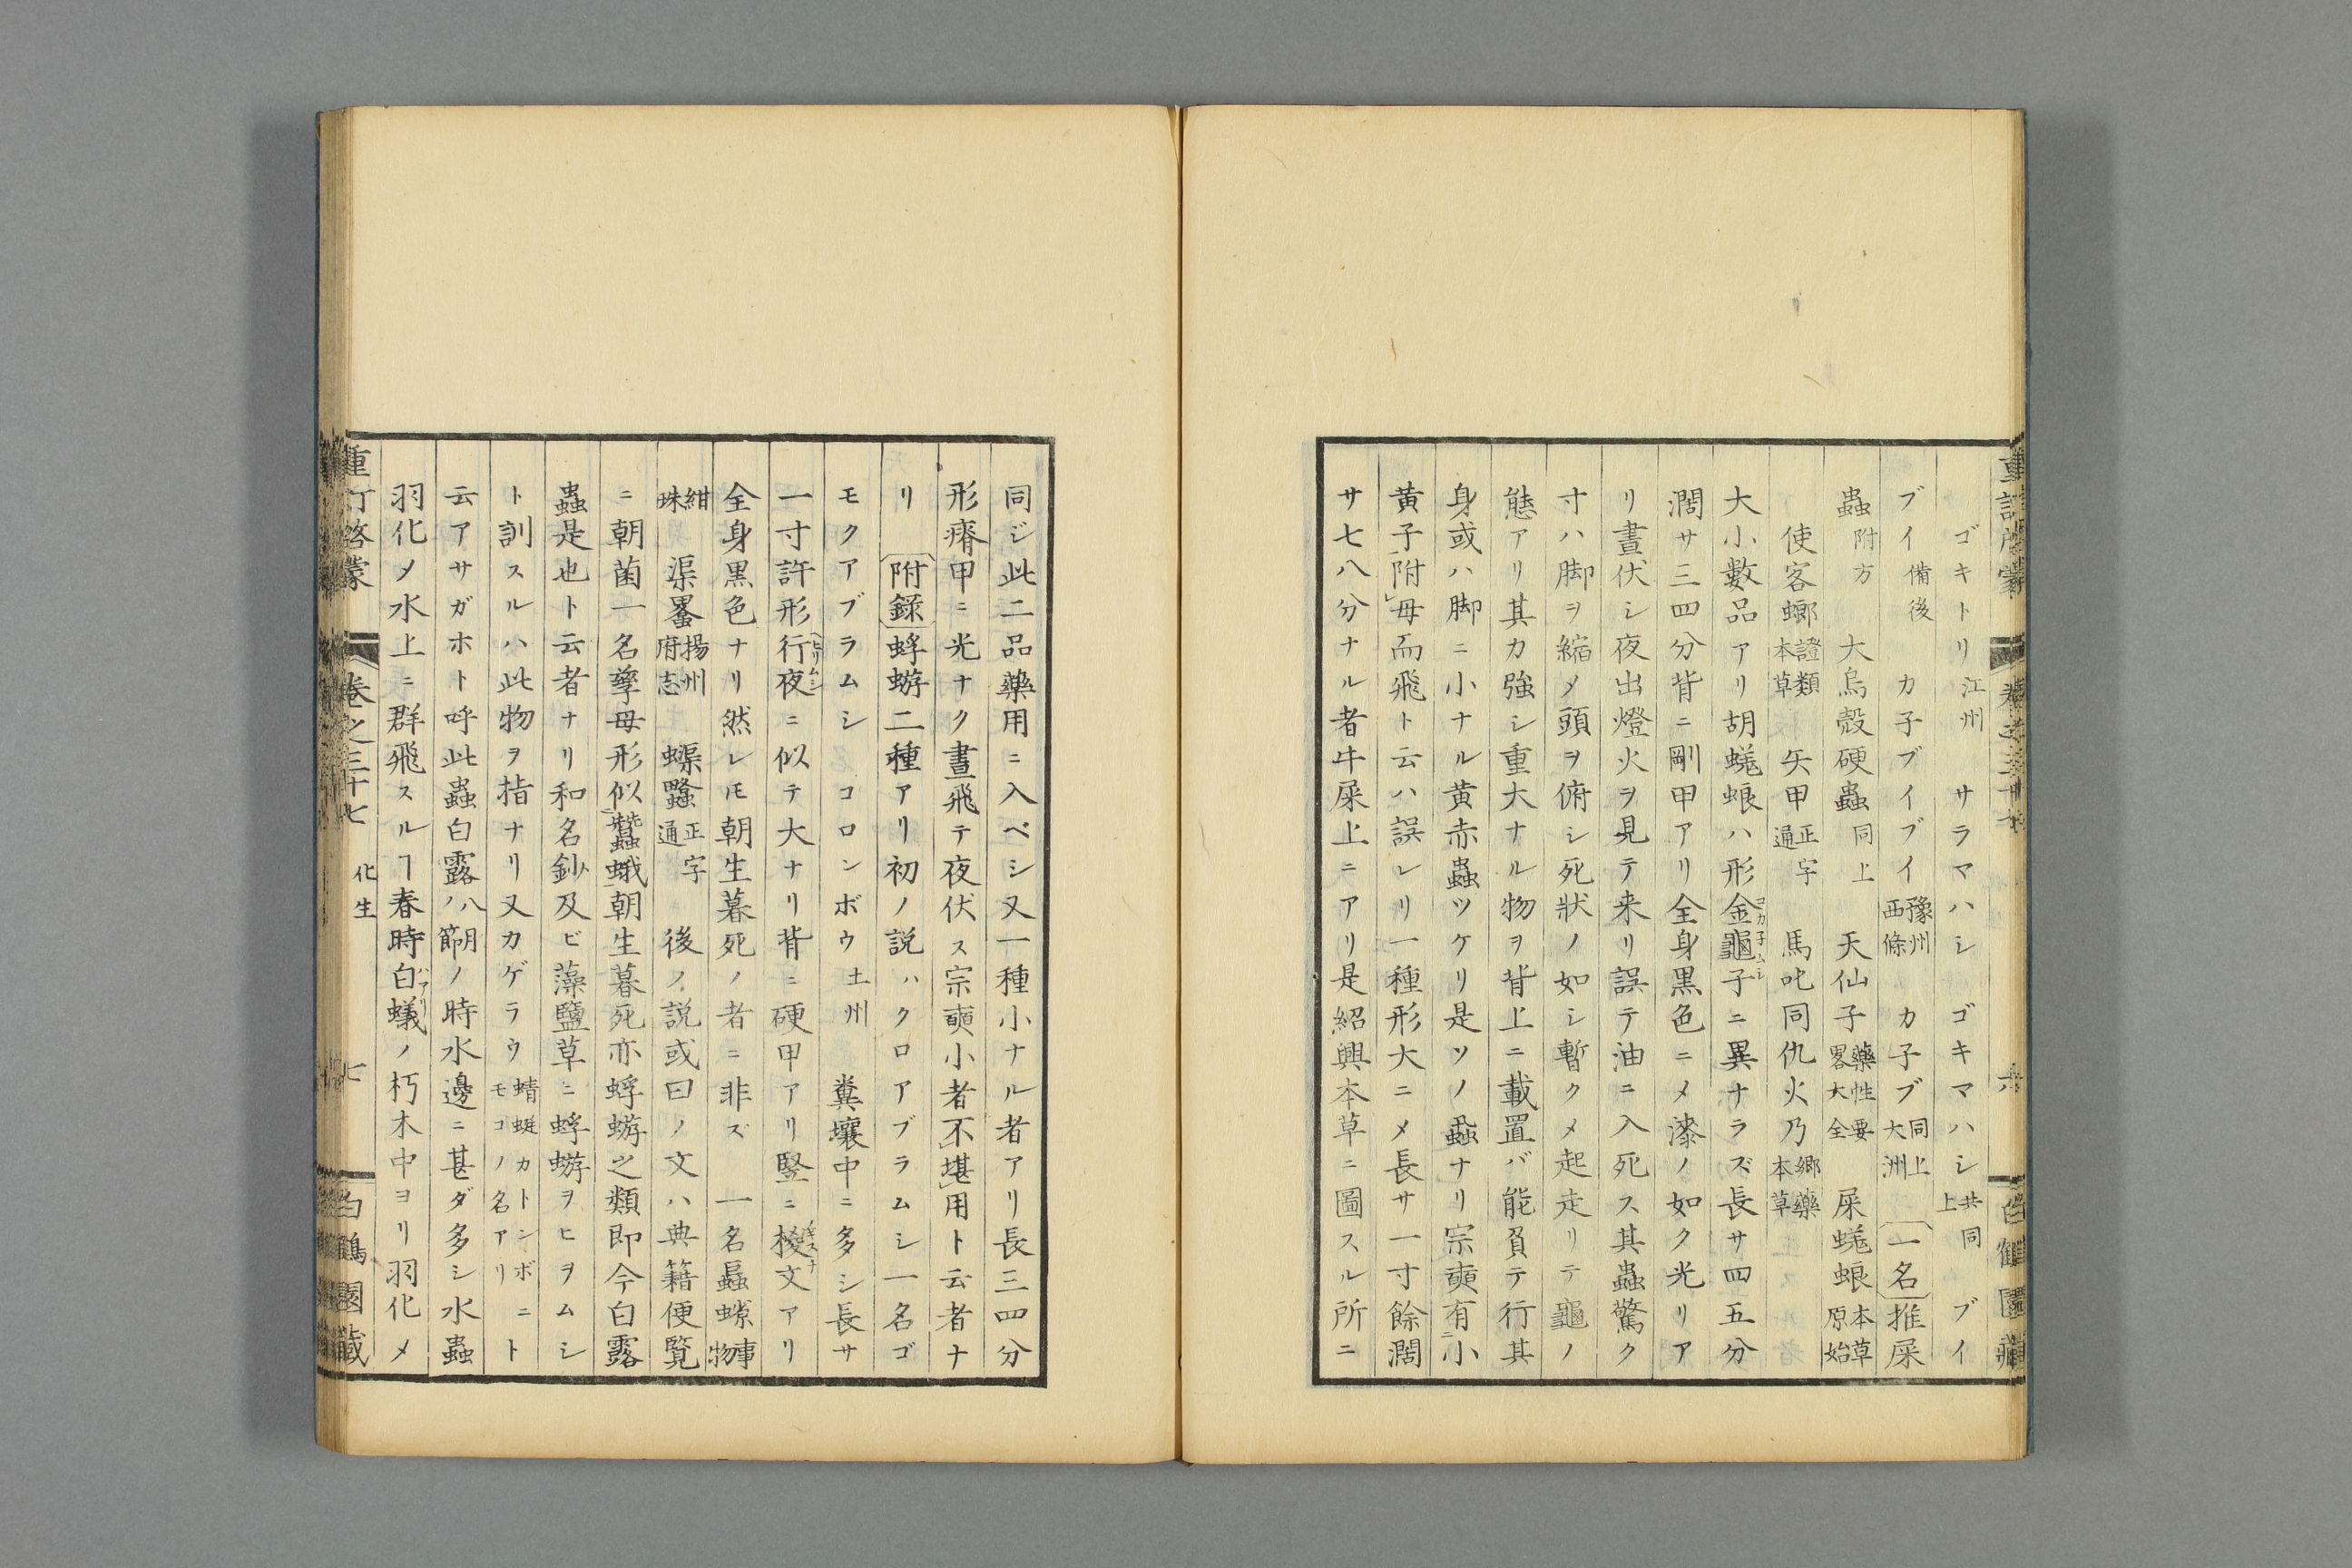 ゴキトリ江州　サラマハシ　ゴキマハシ共同上　ブイ
ブイ備後　カ子ブイブイ豫州西條　カ子ブ同上大洲　一名推屎
蟲附方　大烏殼硬蟲同上　天仙子藥性要畧大全　屎蜣蜋本草原始
使客螂證類本草　矢甲正字通　馬叱同仇火乃郷藥本草
大小數品アリ胡蜣蜋ハ形金龜子コカ子ムシニ異ナラズ長サ四五分
濶サ三四分背ニ剛甲アリ全身黒色ニメ漆ノ如ク光リア
リ晝伏シ夜出燈火ヲ見テ来リ誤テ油ニ入死ス其蟲驚ク
寸ハ脚ヲ縮メ頭ヲ俯シ死狀ノ如シ暫クメ起走リテ龜ノ
態アリ其カ強シ重大ナル物ヲ背上ニ載置バ能負テ行其
身或ハ脚ニ小ナル黄赤蟲ツケリ是ソノ蝨ナリ宗奭有小
黄子附母而飛ト云ハ誤レリ一種形大ニメ長サ一寸餘濶
サ七八分ナル者牛屎上ニアリ是紹興本草ニ圖スル所ニ
同ジ此二品藥用ニ入ベシ又一種小ナル者アリ長三四分
形瘠甲ニ光ナク晝飛テ夜伏ス宗奭小者不堪用ト云者ナ
リ　附録蜉蝣二種アリ初ノ説ハクロアブラムシ一名ゴ
モクアブラムシ　コロンボウ土州　糞壤中ニ多シ長サ
一寸許形行夜ヘヒリムシニ似テ大ナリ背ニ硬甲アリ竪ニ稜文アリ
全身黒色ナリ然レ𪜈朝生暮死ノ者ニ非ズ　一名蝨蟂事物
紺珠　渠畧揚州府志　蟝蟞正字通　後ノ説或曰ノ文ハ典籍便覧
ニ朝菌一名孳母形似蠶蛾朝生暮死亦蜉蝣之類即今白露
蟲是也ト云者ナリ和名鈔及ビ藻鹽草ニ蜉蝣ヲヒヲムシ
ト訓スルハ此物ヲ指ナリ又カゲラウ蜻蜓カトンボニトモコノ名アリ
云アサガホト呼此蟲白露八月ノ節ノ時水邊ニ甚ダ多シ水蟲
羽化メ水上ニ群飛スルヿ春時白蟻ハアリノ朽木中ヨリ羽化メ
重訂啓蒙　卷之三十七　化生　七　白鶴園藏